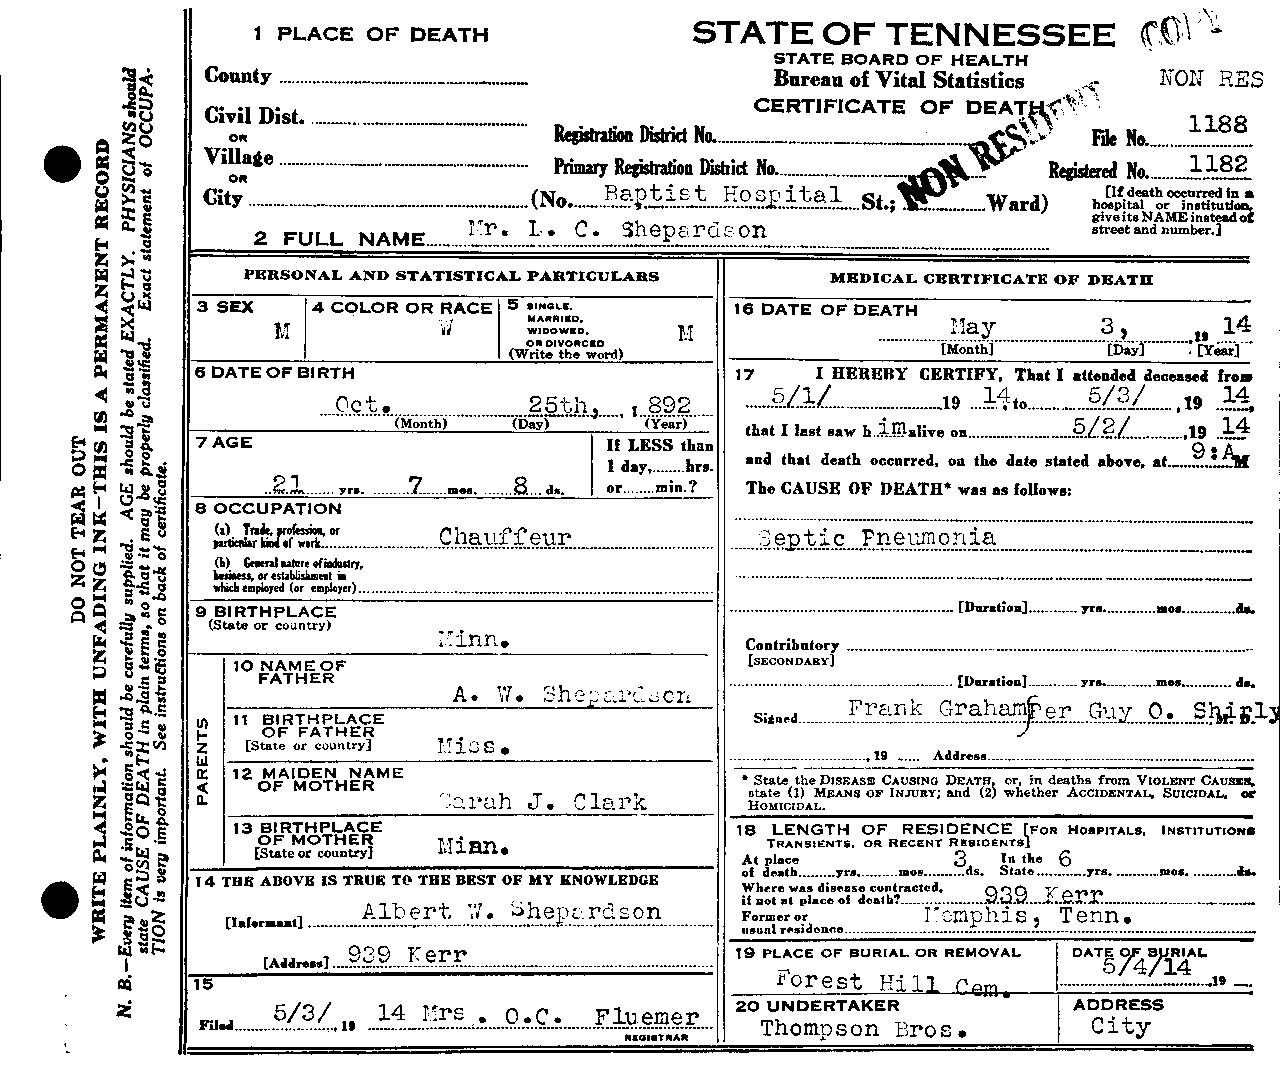 DO NOT TEAR OUT
WRITE PLAINLY, WITH UNFADING INK—THIS IS A PERMANENT RECORD
N. B.—Every item of information should be carefully supplied. AGE should be stated EXACTLY. PHYSICIANS should
state CAUSE OF DEATH in plain terms, so that it may be properly classified. Exact statement of OCCUPA-
TION is very important. See instructions on back of certificate.
1 PLACE OF DEATH
County
Civil Dist.
OR
Village
OR
City
STATE OF TENNESSEE
COPY
STATE BOARD OF HEALTH
Bureau of Vital Statistics
NON RES
CERTIFICATE OF DEATH
NON RESIDENT
Registration District No.
File No. 1188
Primary Registration District No.
Registered No. 1182
(No. Baptist Hospital St.; Ward)
[If death occurred in a
hospital or institution,
give its NAME instead of
street and number.]
2 FULL NAME Mr. L. C. Shepardson
PERSONAL AND STATISTICAL PARTICULARS
3 SEX
M
4 COLOR OR RACE
W
5 SINGLE,
MARRIED,
WIDOWED,
OR DIVORCED
(Write the word)
M
6 DATE OF BIRTH
Oct. 25th, 1892
(Month) (Day) (Year)
7 AGE
21 yrs. 7 mos. 8 ds.
If LESS than
1 day, hrs.
or min.?
8 OCCUPATION
(a) Trade, profession, or
particular kind of work Chauffeur
(b) General nature of industry,
business, or establishment in
which employed (or employer)
9 BIRTHPLACE
(State or country)
Minn.
PARENTS
10 NAME OF
FATHER
A. W. Shepardson
11 BIRTHPLACE
OF FATHER
[State or country] Miss.
12 MAIDEN NAME
OF MOTHER
Sarah J. Clark
13 BIRTHPLACE
OF MOTHER
[State or country] Minn.
14 THE ABOVE IS TRUE TO THE BEST OF MY KNOWLEDGE
[Informant] Albert W. Shepardson
[Address] 939 Kerr
15
Filed 5/3/, 19 14 Mrs. O.C. Fluemer
REGISTRAR
MEDICAL CERTIFICATE OF DEATH
16 DATE OF DEATH
May 3, , 19 14
[Month] [Day] [Year]
17 I HEREBY CERTIFY, That I attended deceased from
5/1/ 19 14, to 5/3/ , 19 14,
that I last saw him alive on 5/2/ , 19 14
and that death occurred, on the date stated above, at 9:A M
The CAUSE OF DEATH* was as follows:
Septic Pneumonia
[Duration] yrs. mos. ds.
Contributory
[SECONDARY]
[Duration] yrs. mos. ds.
Signed Frank Graham per Guy O. Shirly
, 19 Address
* State the DISEASE CAUSING DEATH, or, in deaths from VIOLENT CAUSES,
state (1) MEANS OF INJURY; and (2) whether ACCIDENTAL, SUICIDAL, or
HOMICIDAL.
18 LENGTH OF RESIDENCE [FOR HOSPITALS, INSTITUTIONS
TRANSIENTS, OR RECENT RESIDENTS]
At place
of death yrs. mos. 3 ds. In the
State 6 yrs. mos. ds.
Where was disease contracted,
if not at place of death? 939 Kerr
Former or
usual residence Memphis, Tenn.
19 PLACE OF BURIAL OR REMOVAL
Forest Hill Cem.
DATE OF BURIAL
5/4/14 , 19
20 UNDERTAKER
Thompson Bros.
ADDRESS
City